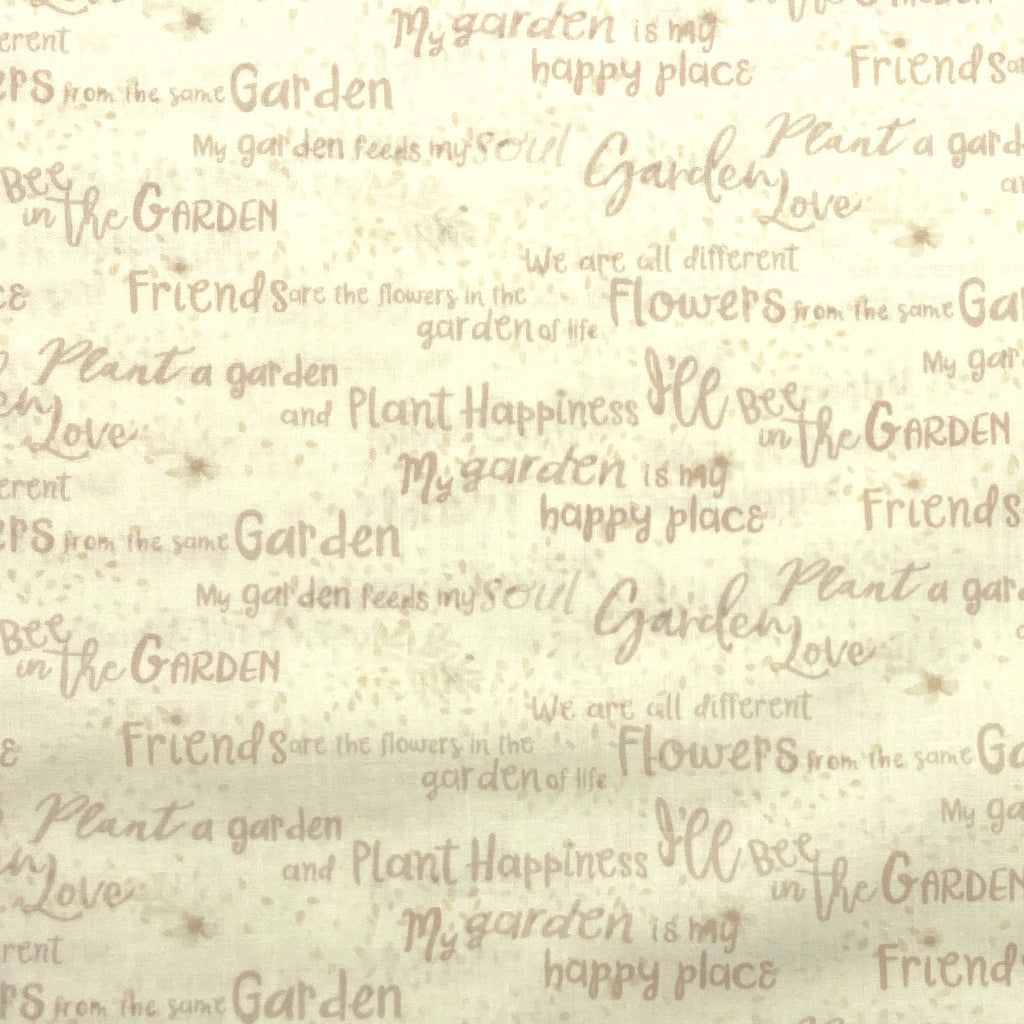 in the GARDEN
My garden is my
happy place
erent
ers from the same Garden
Friends are
My garden feeds my soul
Garden
Love
Plant a garden
Bee
in the GARDEN
We are all different
Flowers from the same Gar
Friends are the flowers in the
garden of life
Plant a garden
and Plant Happiness
Love
I'll Bee
in the GARDEN
My gar
My garden is my
happy place
erent
ers from the same Garden
Friends
My garden feeds my soul
Garden
Love
Plant a gar
Bee
in the GARDEN
We are all different
Flowers from the same Ga
Friends are the flowers in the
garden of life
Plant a garden
and Plant Happiness
Love
I'll Bee
in the GARDEN
My ga
My garden is my
happy place
rent
rs from the same Garden
Friend